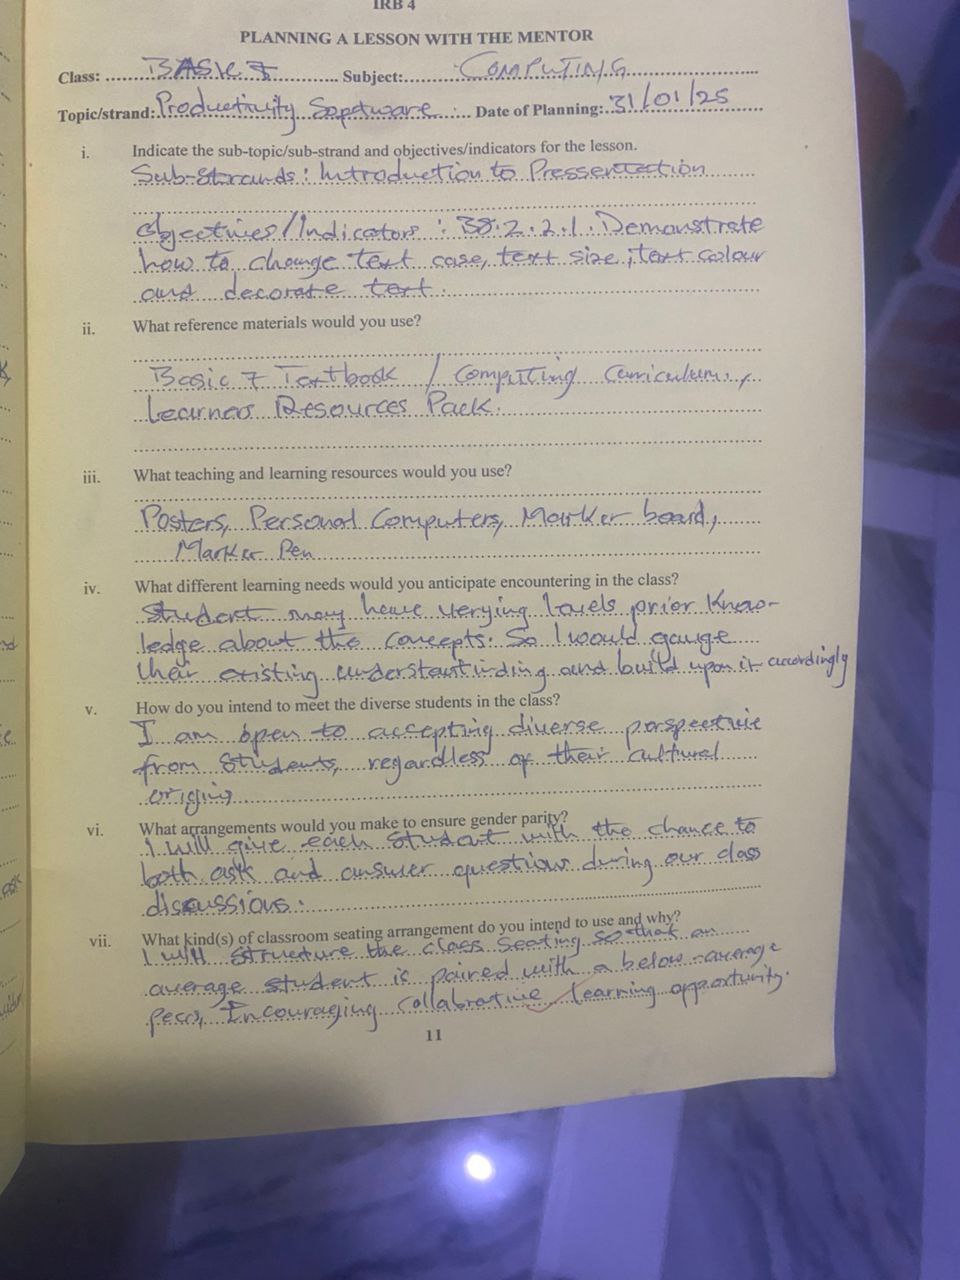 IRB 4
PLANNING A LESSON WITH THE MENTOR
Class: BASIC 7 Subject: COMPUTING
Topic/strand: Productivity Sopetware Date of Planning: 31/01/25
i. Indicate the sub-topic/sub-strand and objectives/indicators for the lesson.
Sub-Strands: Introduction to Pressentation
Objectives/Indicators: B8.2.2.1. Demonstrate
how to change text case, text size, text colour
and decorate text.
ii. What reference materials would you use?
Basic 7 Textbook / Computing Curriculum,
Learners Resources Pack.
iii. What teaching and learning resources would you use?
Posters, Personal Computers, Marker board,
Marker Pen
iv. What different learning needs would you anticipate encountering in the class?
Student may have verying levels prior Know-
ledge about the concepts. So I would gauge
their existing understanding and build upon it accordingly
v. How do you intend to meet the diverse students in the class?
I am open to accepting diverse perspective
from Students, regardless of their cultural
origins
vi. What arrangements would you make to ensure gender parity?
I will give each Student with the chance to
both ask and answer questions during our class
discussions.
vii. What kind(s) of classroom seating arrangement do you intend to use and why?
I will structure the class seating so that an
average student is paired with a below-average
peer, Encouraging collabrative learning opportunity.
11